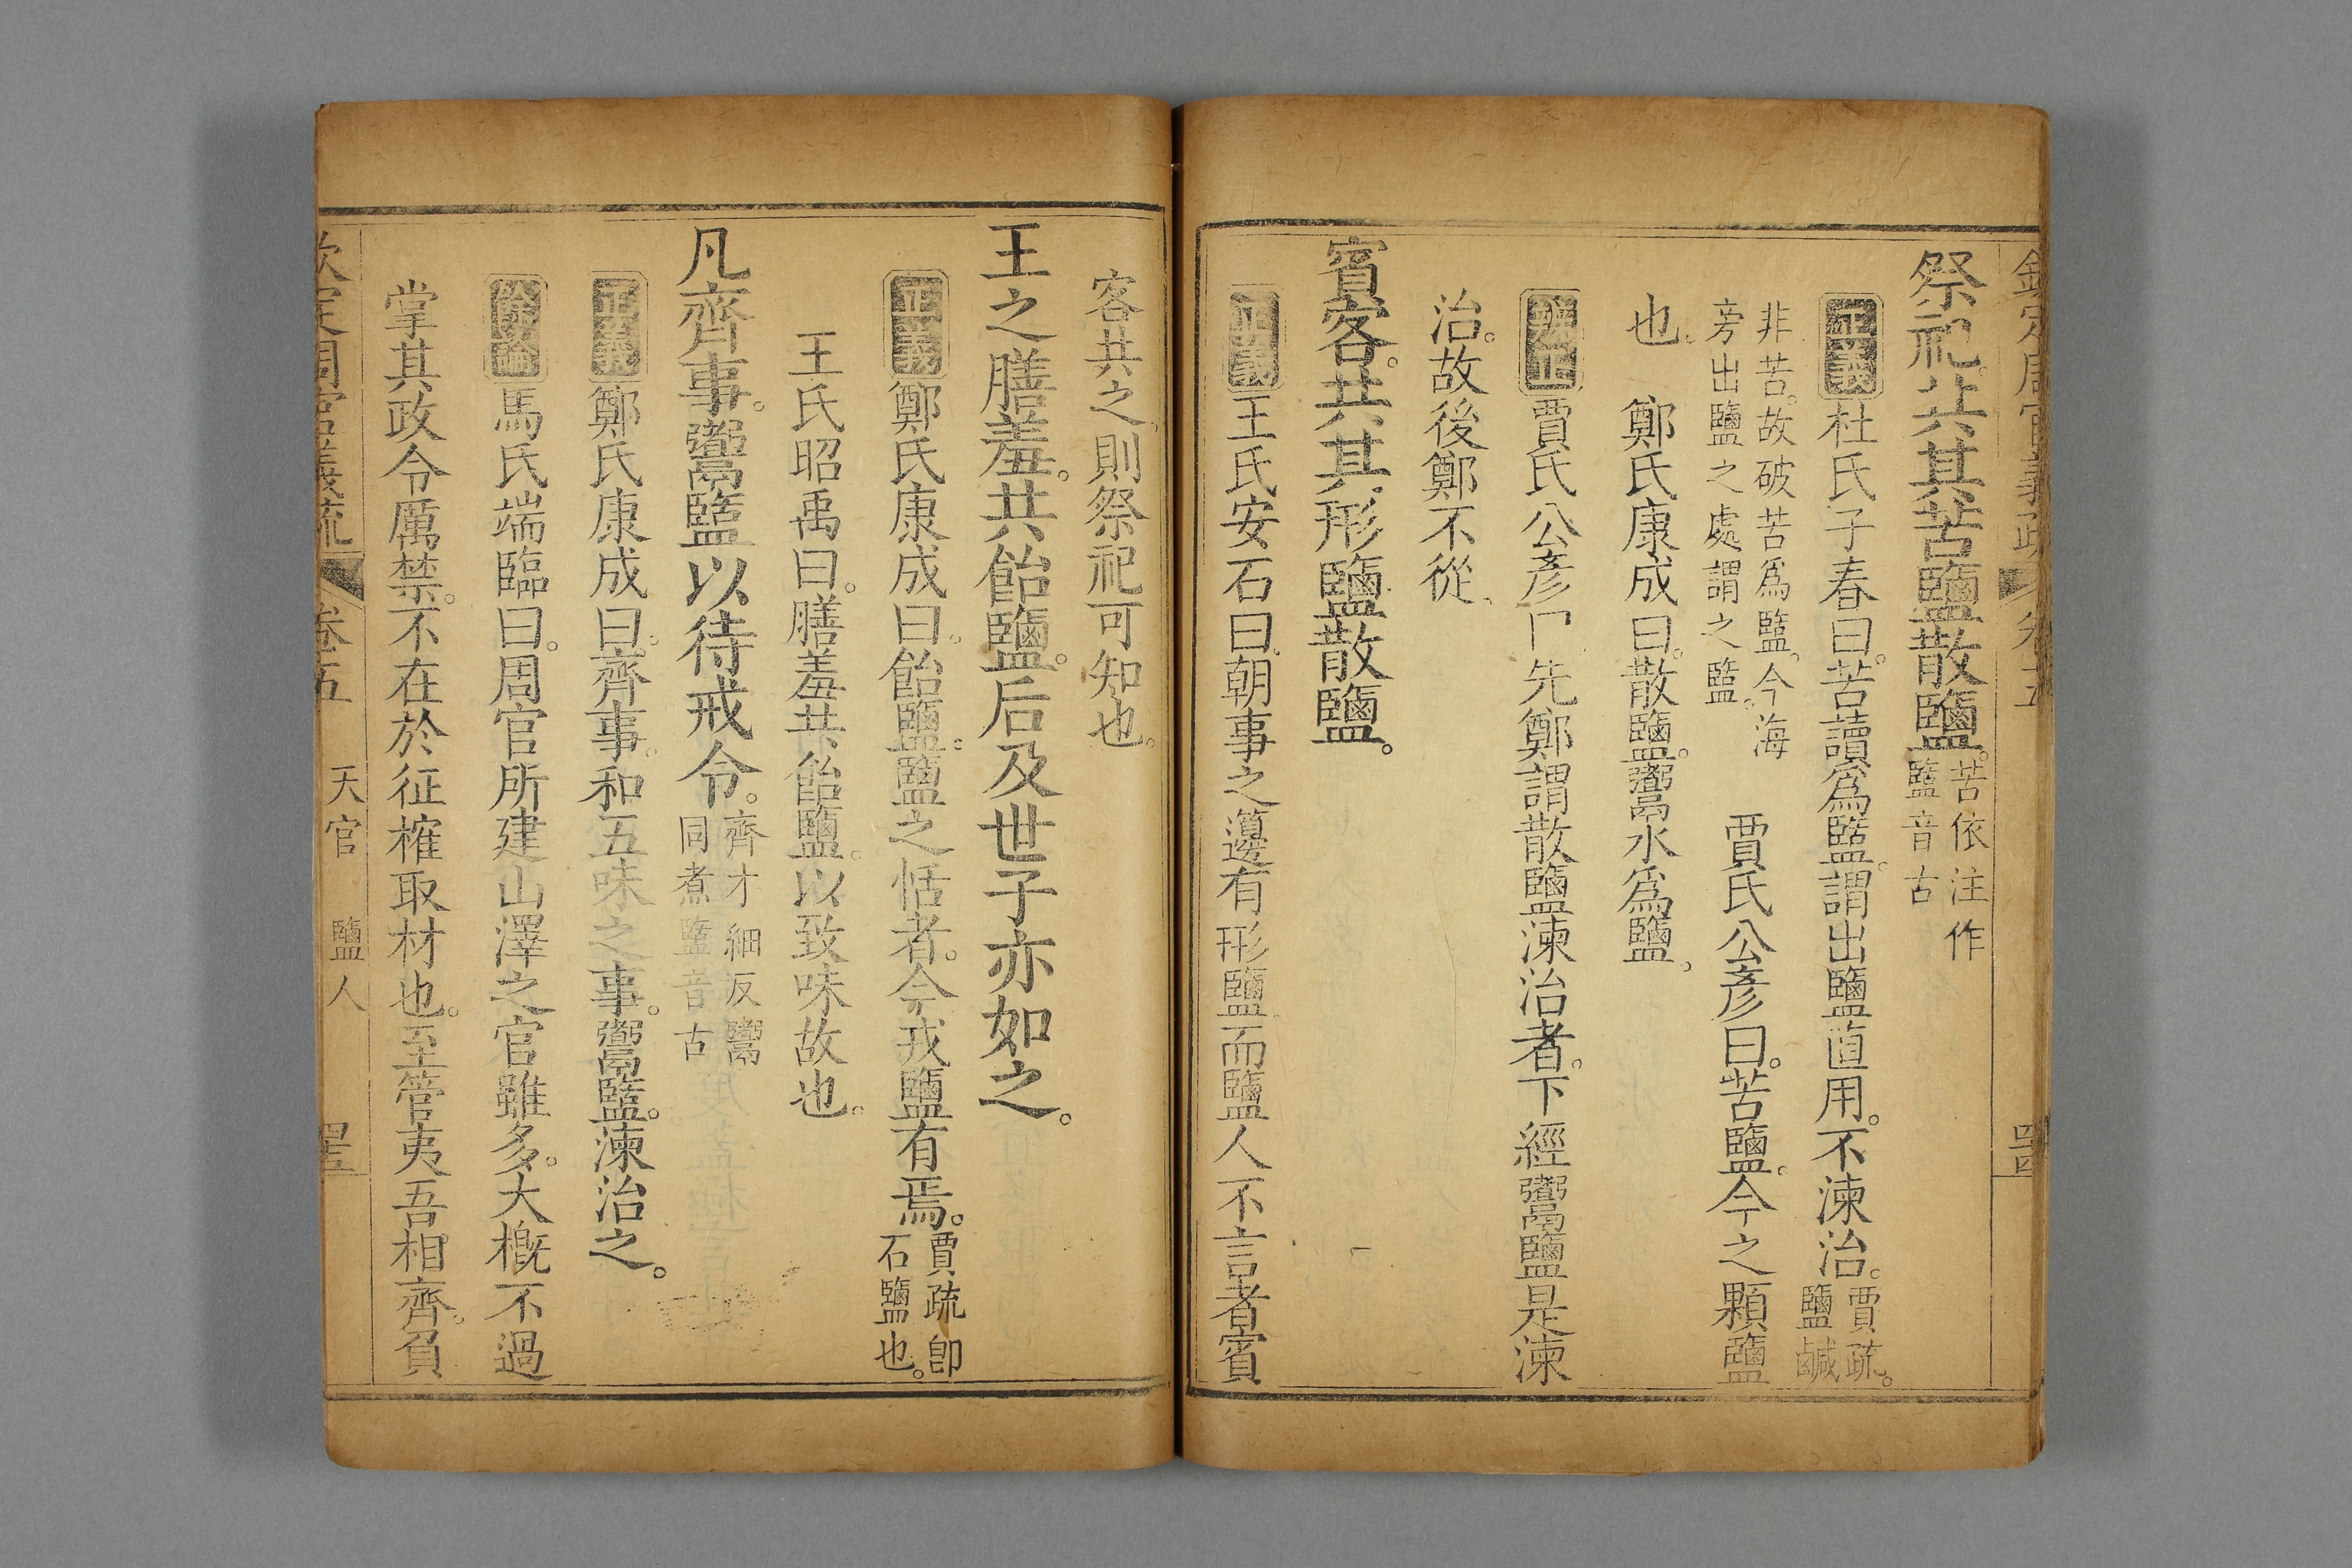 欽定周官義疏 卷五 四
祭祀共其苦鹽散鹽。苦依注作盬音古
正義 杜氏子春曰。苦讀爲盬。謂出鹽直用。不湅治。賈疏。鹽鹹
非苦。故破苦爲盬。今海旁出鹽之處謂之盬。 賈氏公彥曰。苦鹽。今之顆鹽
也。 鄭氏康成曰。散鹽。鬻水爲鹽。
辨正 賈氏公彥曰先鄭謂散鹽湅治者。下經鬻鹽是湅
治。故後鄭不從。
賓客。共其形鹽散鹽。
正義 王氏安石曰。朝事之籩有形鹽而鹽人不言者賓
客共之。則祭祀可知也。
王之膳羞。共飴鹽。后及世子亦如之。
正義 鄭氏康成曰。飴鹽。鹽之恬者。今戎鹽有焉。賈疏卽石鹽也。
王氏昭禹曰。膳羞共飴鹽。以致味故也。
凡齊事。鬻盬以待戒令。齊才細反鬻同煮盬音古
正義 鄭氏康成曰。齊事。和五味之事。鬻盬。湅治之。
餘論 馬氏端臨曰。周官所建山澤之官雖多。大概不過
掌其政令厲禁。不在於征榷取材也。至管夷吾相齊。負
欽定周官義疏 卷五 天官 鹽人